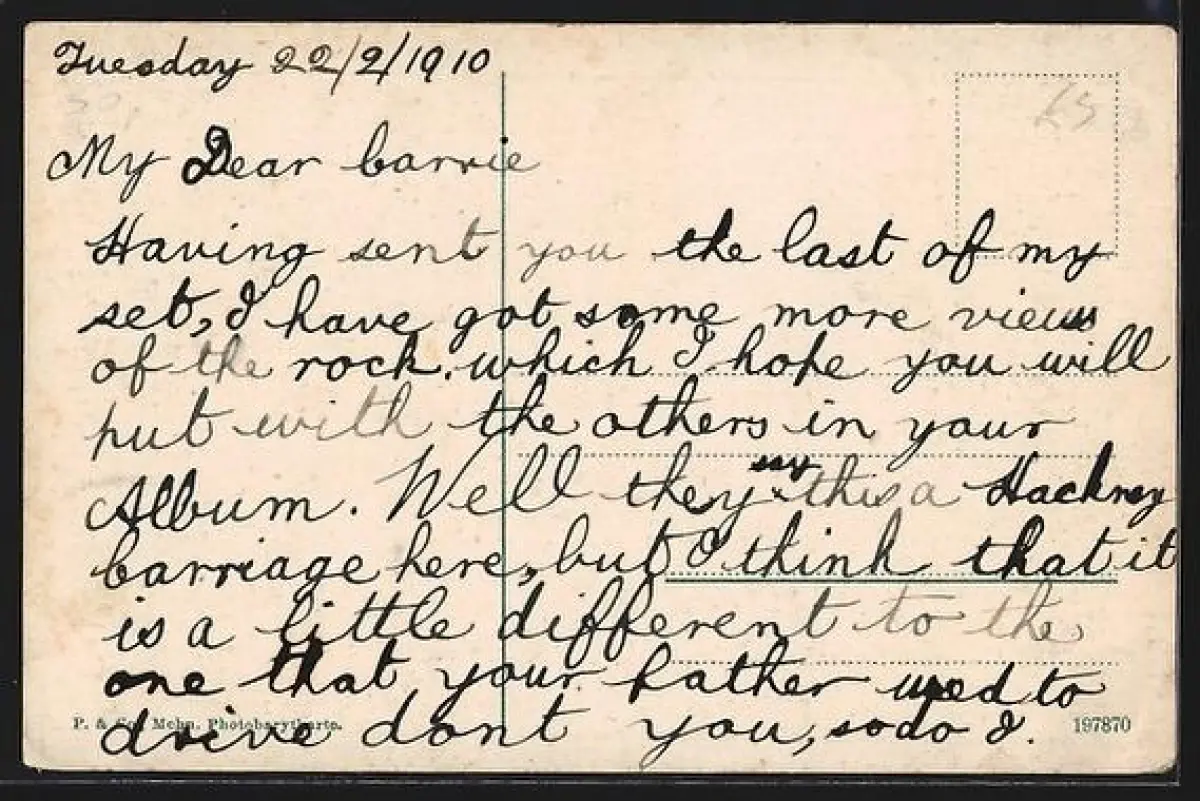 Tuesday 22/2/1910
My Dear Carrie
Having sent you the last of my
set, I have got some more views
of the rock. which I hope you will
put with the others in your
Album. Well they say this a Hackney
Carriage here, but I think that it
is a little different to the
one that your father used to
drive dont you, so do I.
P. & Co. Mchn. Photobarytkarte.
197870